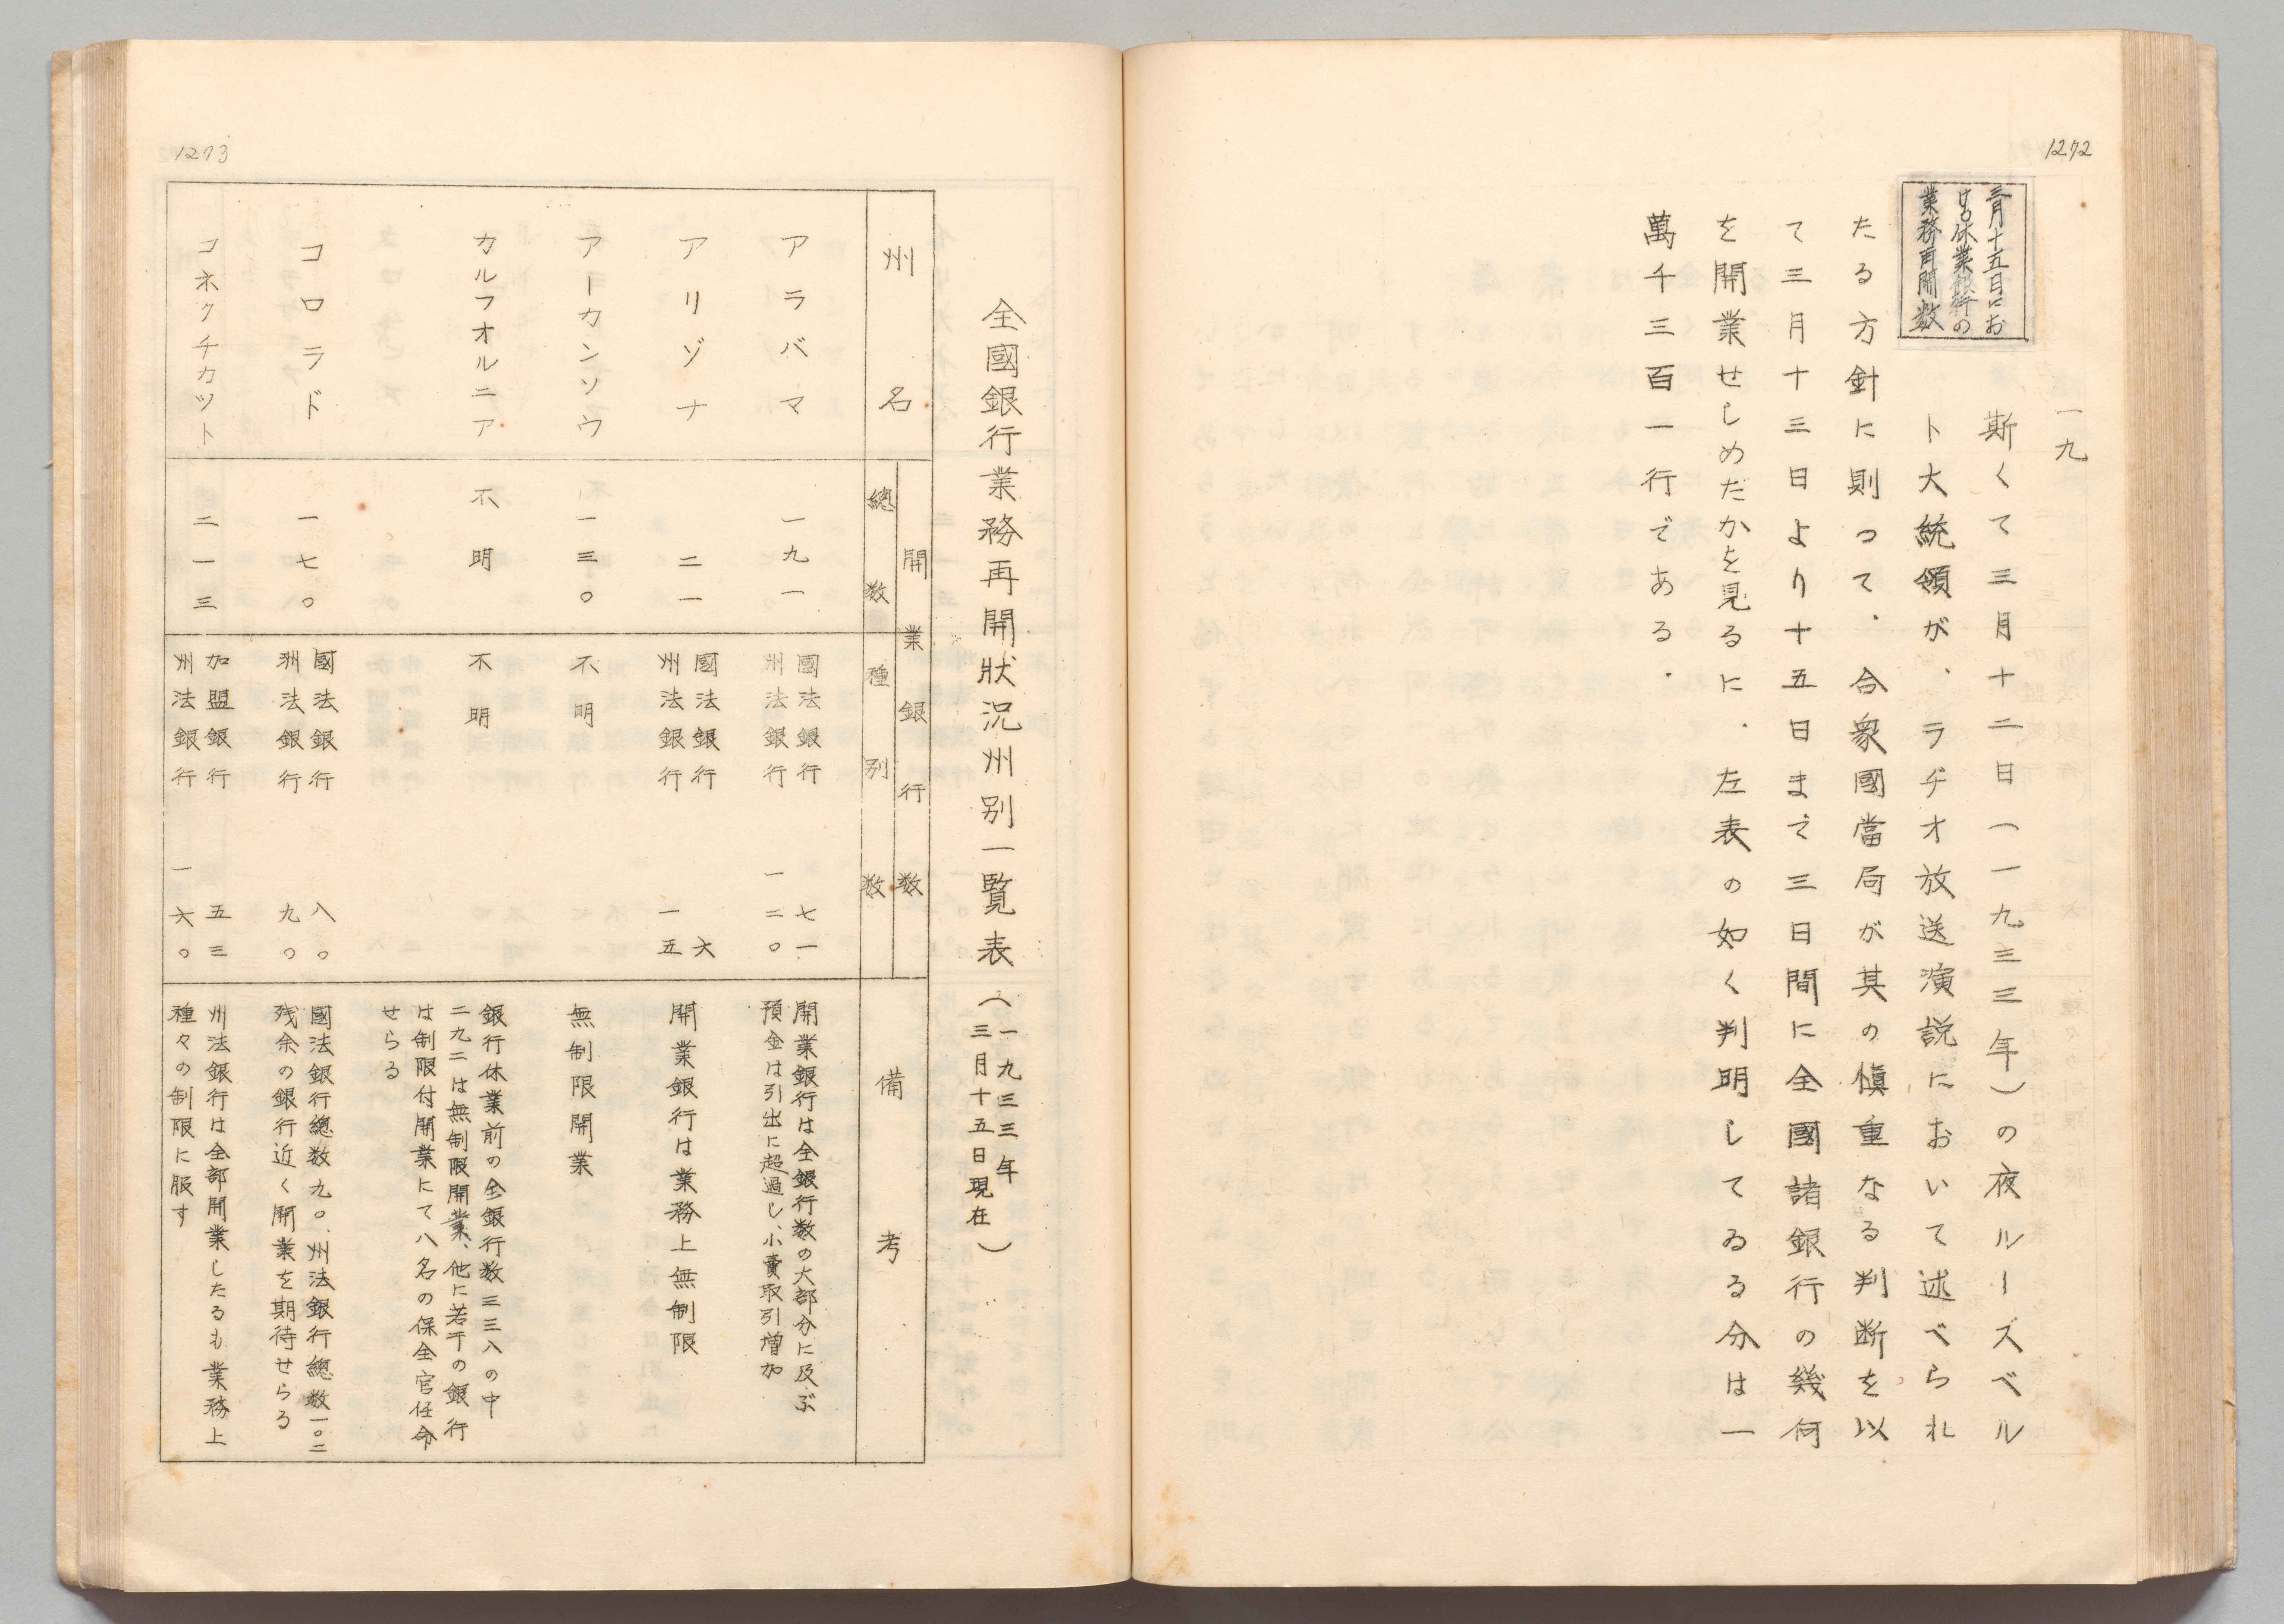 1272
三月十五日にお
ける休業銀行の
業務再開数
一九
斯くて三月十二日(一九三三年)の夜ルーズベル
ト大統領が、ラヂオ放送演説において述べられ
たる方針に則つて、合衆國當局が其の愼重なる判断を以
て三月十三日より十五日まで三日間に全國諸銀行の幾何
を開業せしめたかを見るに、左表の如く判明してゐる分は一
萬千三百一行である。
1273
全國銀行業務再開狀況州別一覧表(一九三三年三月十五日現在)
州名
開業銀行数
總数
種別
数
備考
アラバマ
一九一
國法銀行 七一
州法銀行 一二〇
開業銀行は全銀行数の大部分に及ぶ
預金は引出に超過し、小賣取引増加
アリゾナ
二一
國法銀行 六
州法銀行 一五
開業銀行は業務上無制限
アーカンソウ
一三〇
不明
無制限開業
カルフオルニア
不明
不明
銀行休業前の全銀行数三三八の中
二九二は無制限開業、他に若干の銀行
は制限付開業にて八名の保全官任命
せらる
コロラド
一七〇
國法銀行 八〇
洲法銀行 九〇
國法銀行總数九〇、州法銀行總数一〇二
残余の銀行近く開業を期待せらる
コネクチカツト
二一三
加盟銀行 五三
州法銀行 一六〇
州法銀行は全部開業したるも業務上
種々の制限に服す